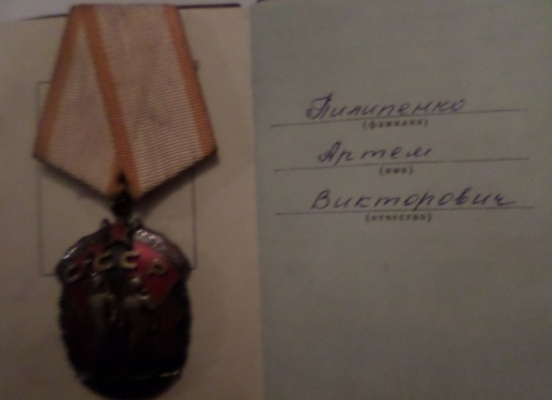 Пилипенко
(фамилия)
Артем
(имя)
Викторович
(отчество)
СССР